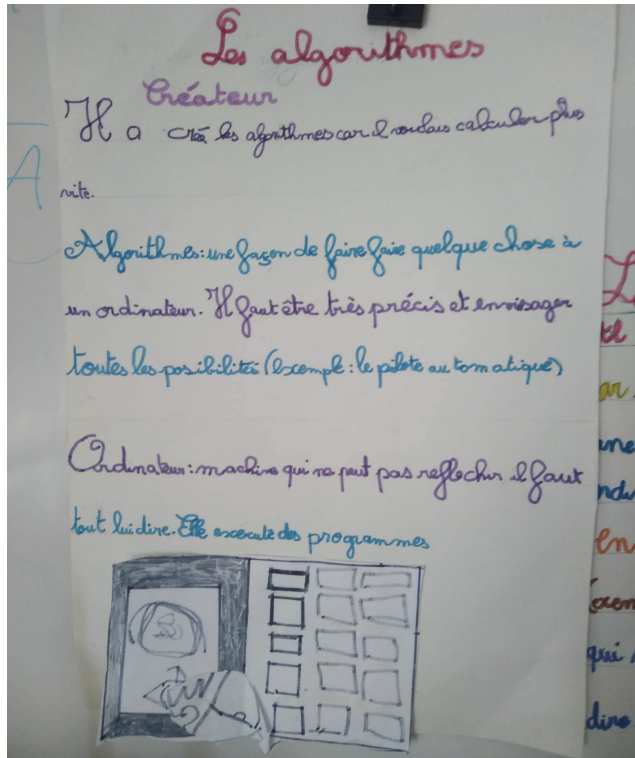 Les algorithmes
Créateur
Il a créé les algorithmes car il voulais calculer plus
vite.
Algorithmes: une façon de faire faire quelque chose à
un ordinateur. Il faut être très précis et envisager
toutes les posibilités (exemple : le pilote automatique)
Ordinateur: machine qui ne peut pas reflechir il faut
tout lui dire. Elle execute des programmes
A
L
ar
ine
ndu
en
qui
dire